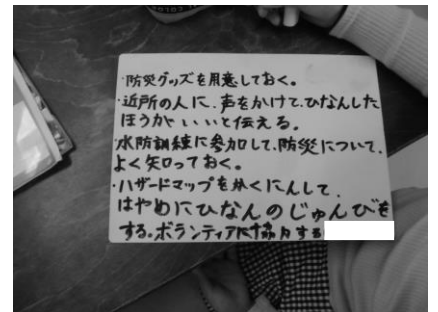 ・防災グッズを用意しておく。
・近所の人に、声をかけて、ひなんした
ほうがいいと伝える。
・水防訓練に参加して、防災について、
よく知っておく。
・ハザードマップをかくにんして、
はやめにひなんのじゅんびを
する。ボランティアに協力する